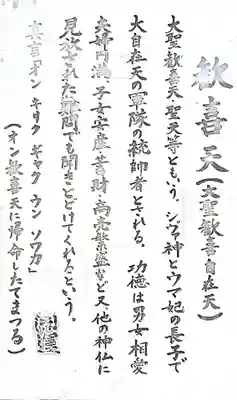 歓喜天(大聖歓喜自在天)
大聖歓喜天聖天等ともいう。シヴァ神とウマ妃の長子で
大自在天の軍隊の統帥者とされる。功徳は男女相愛
夫婦円満子女安産蓄財商売繁盛など又他の神仏に
見放された難問でも聞きとどけてくれるという。
真言「オン キリク ギャク ウン ソワカ」
(オン歓喜天に帰命したてまつる)